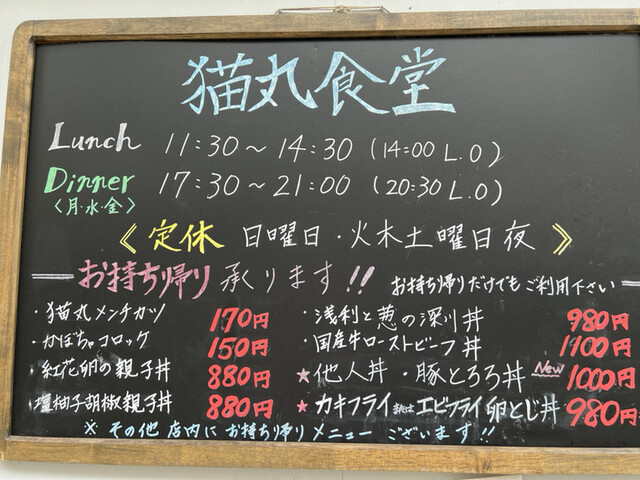 猫丸食堂
Lunch 11:30～14:30 (14:00 L.O)
Dinner 17:30～21:00 (20:30 L.O)
〈月・水・金〉
《定休 日曜日・火木土曜日夜》
お持ち帰り承ります!! お持ち帰りだけでもご利用下さい
・猫丸メンチカツ 170円
・かぼちゃコロッケ 150円
・紅花卵の親子丼 880円
・塩柚子胡椒親子丼 880円
・浅利と葱の深川丼 980円
・国産牛ローストビーフ丼 1100円
★他人丼・豚とろろ丼 New 1000円
★カキフライまたはエビフライ卵とじ丼 980円
※その他店内にお持ち帰りメニューございます!!